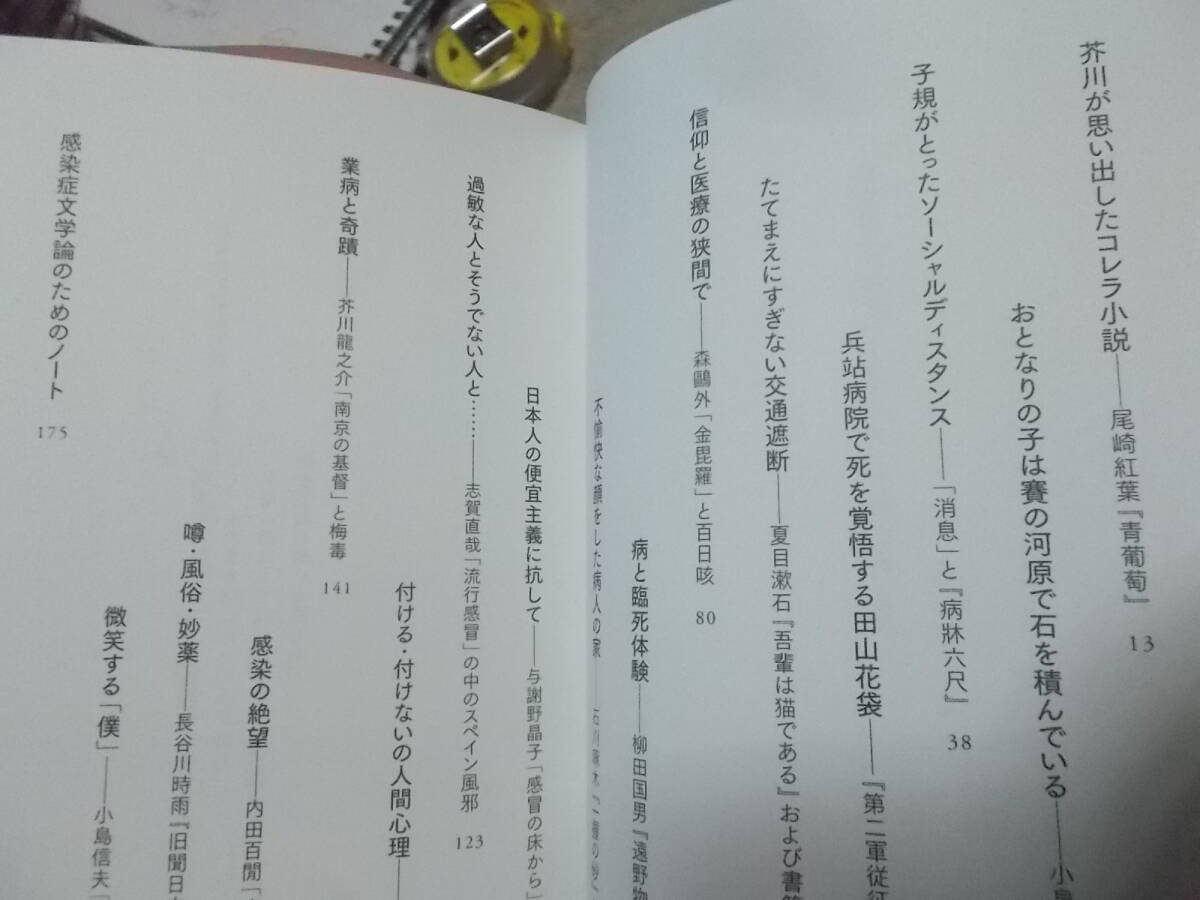 芥川が思い出したコレラ小説――尾崎紅葉『青葡萄』 13
おとなりの子は賽の河原で石を積んでいる――小島
子規がとったソーシャルディスタンス――「消息」と『病牀六尺』 38
兵站病院で死を覚悟する田山花袋――『第二軍従征
たてまえにすぎない交通遮断――夏目漱石『吾輩は猫である』および書簡
信仰と医療の狭間で――森鷗外「金毘羅」と百日咳 80
病と臨死体験――柳田国男『遠野物
不愉快な顔をした病人の家――石川啄木『一握の砂』
日本人の便宜主義に抗して――与謝野晶子「感冒の床から」
過敏な人とそうでない人と……――志賀直哉「流行感冒」の中のスペイン風邪 123
付ける・付けないの人間心理――
業病と奇蹟――芥川龍之介「南京の基督」と梅毒 141
感染の絶望――内田百閒「
噂・風俗・妙薬――長谷川時雨『旧聞日
微笑する「僕」――小島信夫「
感染症文学論のためのノート 175